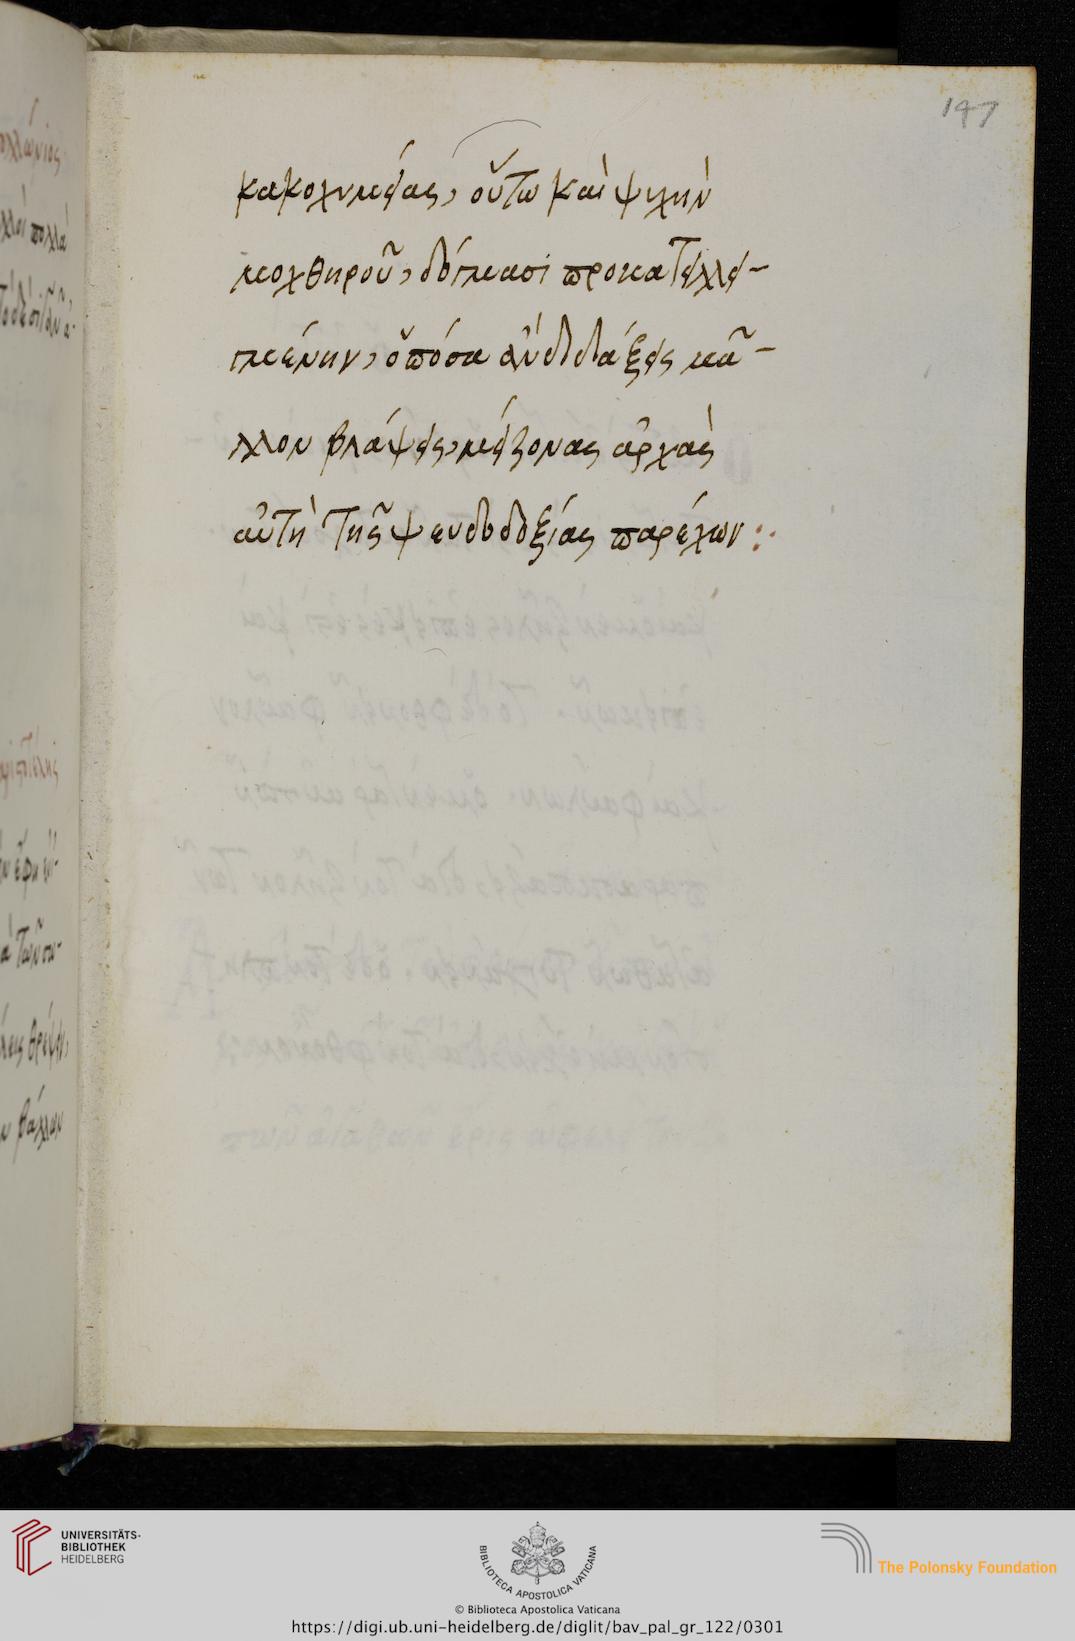 147
κακοχυμείας, οὕτω καὶ ψυχὴν
μοχθηροῦ, δόγμασι προκατειλει-
μμένην, ὁπόσα ἂν διδάξῃς μᾶ-
λλον βλάψεις, μείζονας ἀρχὰς
αὐτῇ τῆς ψευδοδοξίας παρέχων :·
UNIVERSITÄTS-
BIBLIOTHEK
HEIDELBERG
BIBLIOTECA APOSTOLICA VATICANA
The Polonsky Foundation
© Biblioteca Apostolica Vaticana
https://digi.ub.uni-heidelberg.de/diglit/bav_pal_gr_122/0301